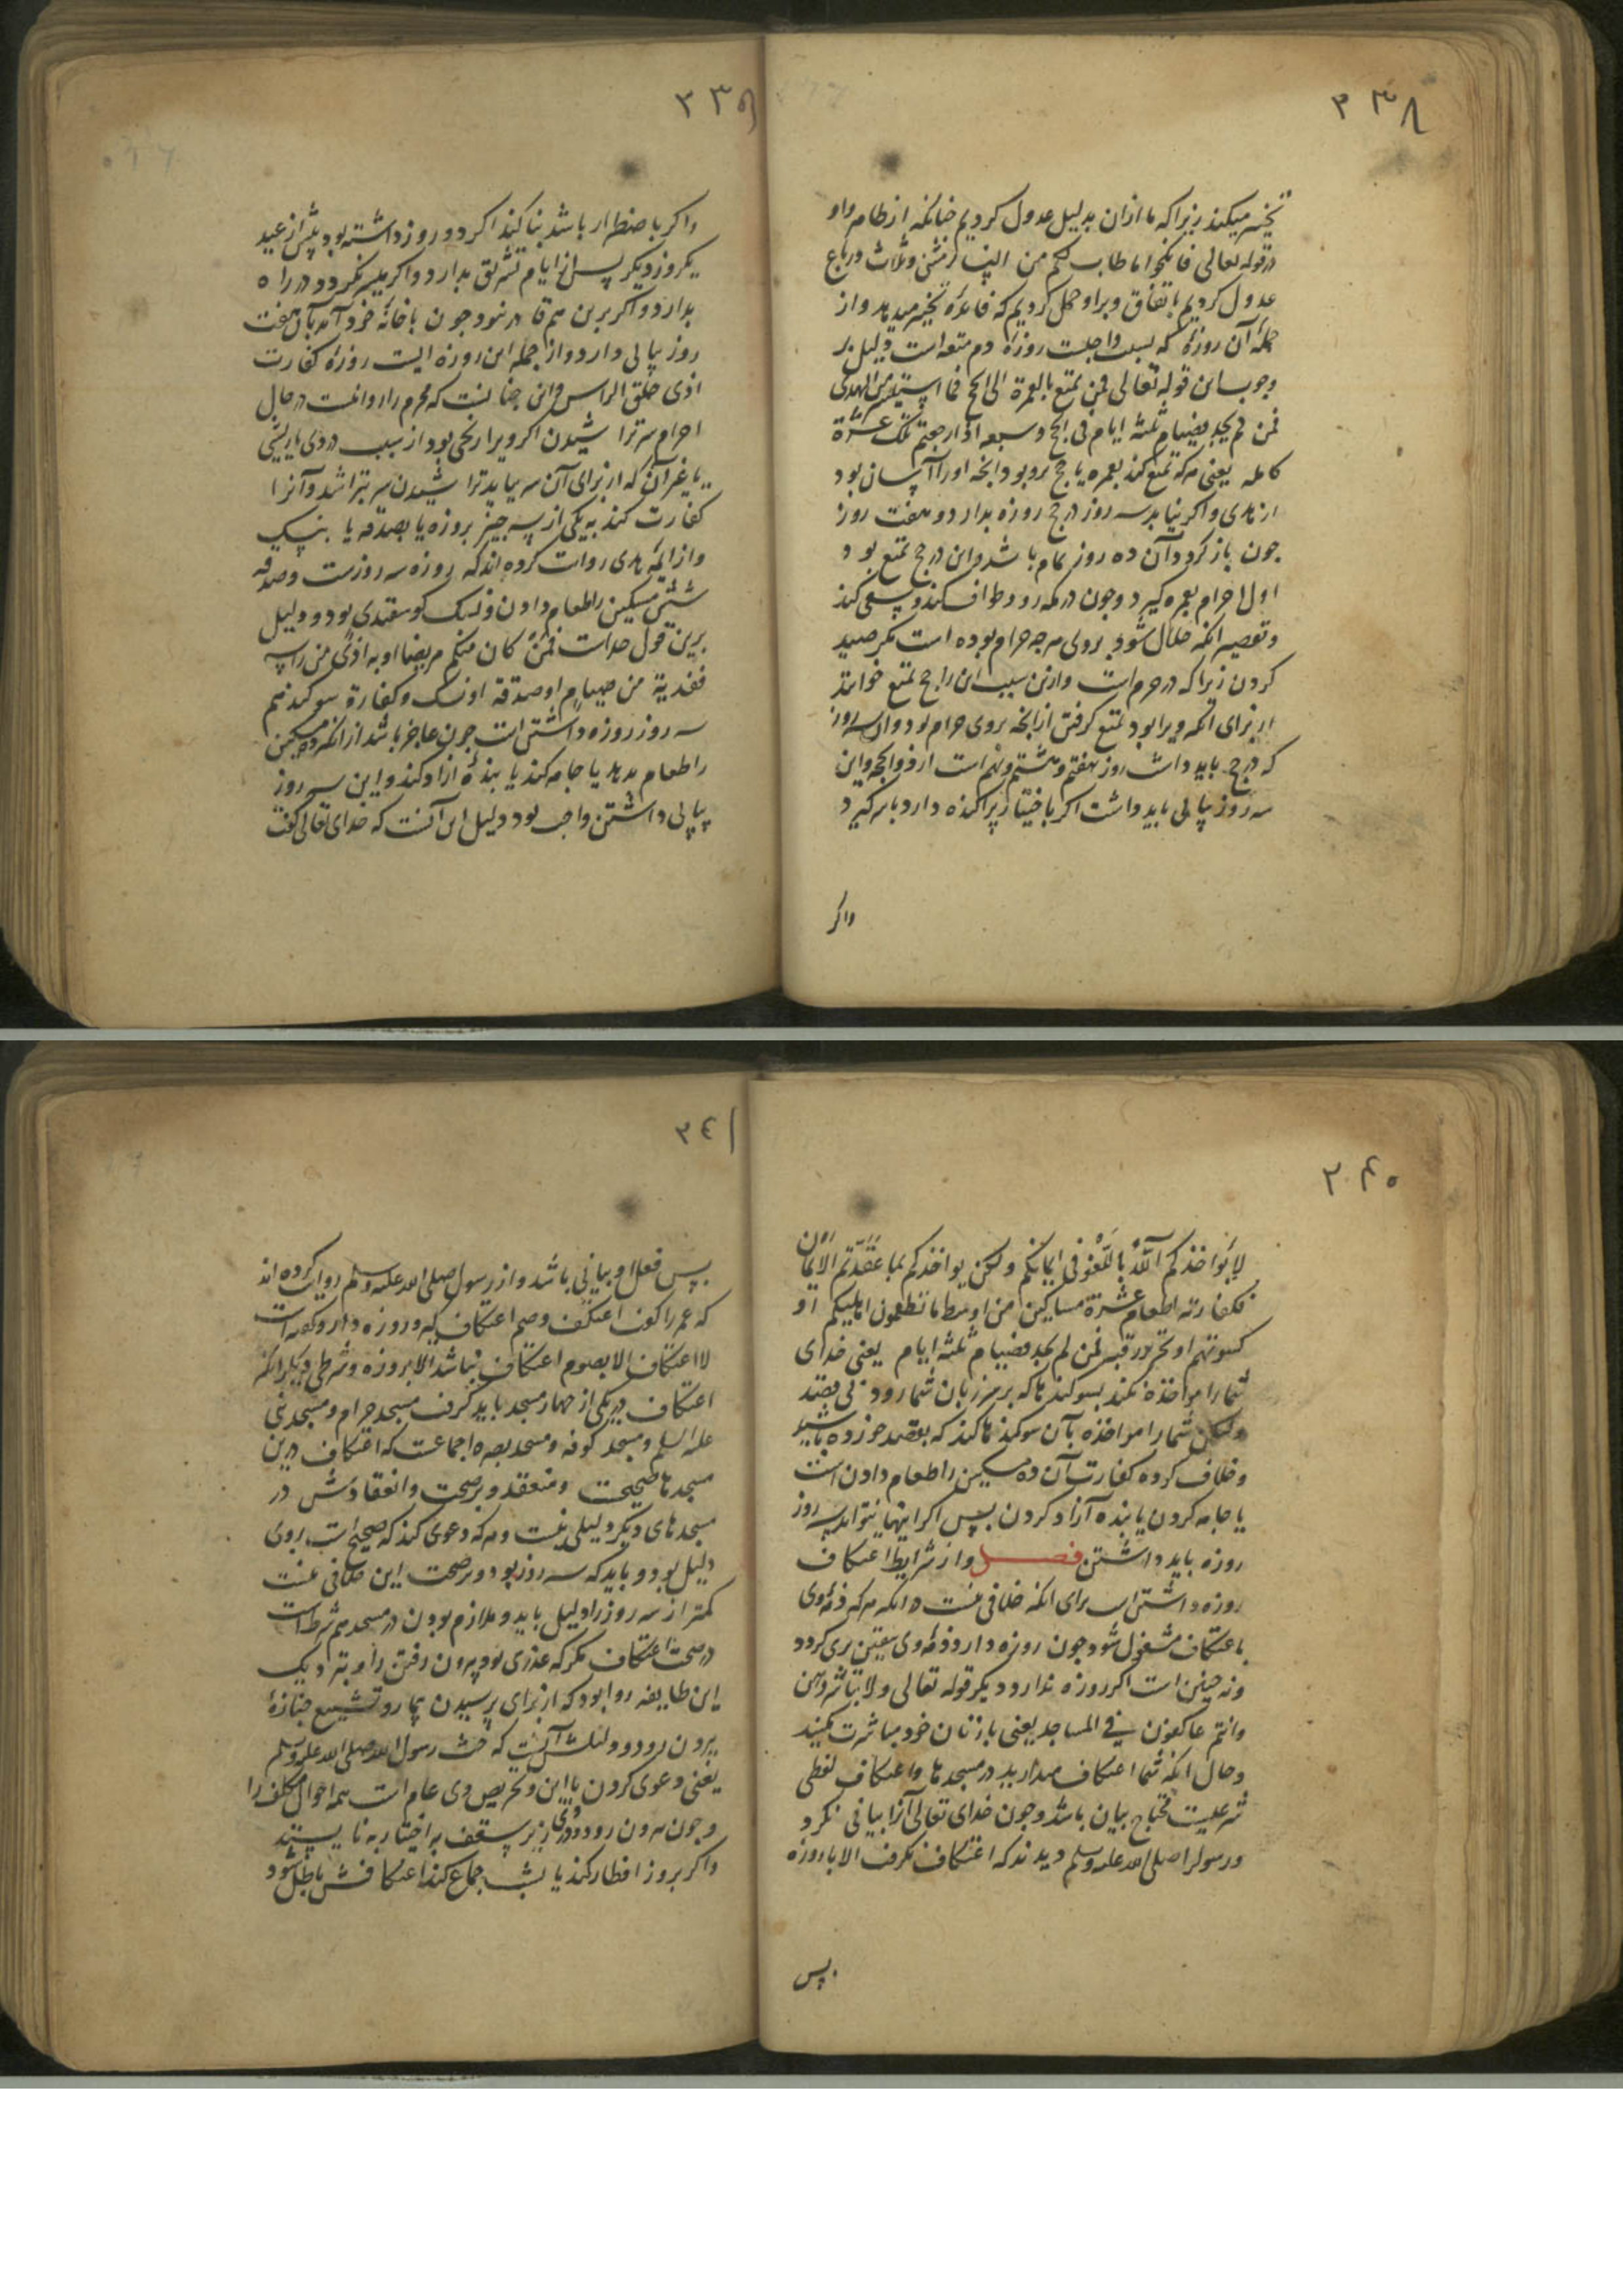 ٢٣٨
تخییر میکند زیرا که ما ازان بدلیل عدول کردیم چنانکه از ظاهر واو
در قوله تعالی فانکحوا ما طاب لکم من النسا مثنی وثلاث ورباع
عدول کردیم باتفاق وبراو حمل کردیم که فایدۀ تخییر میدهد واز
جملۀ آن روزۀ که بسبب واجبست روزۀ دم متعه است ودلیل بر
وجوب این قوله تعالی فمن تمتع بالعمرة الی الحج فما استیسر من الهدی
فمن لم یجد فصیام ثلثه ایام فی الحج وسبعه اذا رجعتم تلک عشرة
کامله یعنی هرکه تمتع کند بعمره یا حج برو بود انچه اورا آسان بود
از هدی واکر نیابد سه روز در حج روزه بدارد و هفت روز
چون باز کردد آن ده روز تمام باشد واین در حج تمتع بود
اول احرام بعمره کیرد وچون در مکه رود طواف کند وسعی کند
وتقصیر انکه حلال شود بروی هرچه حرام بوده است مکر صید
کردن زیرا که در حرم است وازین سبب این را حج تمتع خوانند
از برای انکه ویرا بود تمتع کرفتن از انچه بروی حرام بود وان سه روز
که در حج باید داشت روز هفتم وهشتم ونهم است از ذوالحجه واین
سه روز پیاپی باید داشت اکر باختیار پراکنده دارد باسر کیرد
واکر
٢٣٩
واکر باضطرار باشد بنا کند اکر دو روز داشته بود پیش از عید
یکروز دیکر پس از ایام تشریق بدارد واکر میسر نکردد در راه
بدارد واکر برین هم قادر نبود چون باخانۀ خود آمد باآن هفت
روز پیاپی دارد واز جمله این روزه ایست روزۀ کفارت
اذی حلق الراس واین چنانست که محرم را روا نیست در حال
احرام سر تراشیدن اکر ویرا رنجی بود از سبب دردی یا ریشی
یا غیر آن که از برای آن سر بباید تراشیدن سر بتراشد وآنرا
کفارت کند به یکی از سه چیز بروزه یا بصدقه یا بنسک
واز ایمۀ هدی روایت کرده اند که روزه سه روزست وصدقه
شش مسکین را طعام دادن ونسک کوسفندی بود ودلیل
برین قول خداست فمن کان منکم مریضا او به اذی من راسه
ففدیة من صیام او صدقة او نسک وکفارة سوکند هم
سه روز روزه داشتن است چون عاجز باشد از انکه ده مسکین
را طعام بدهد یا جامه کند یا بندۀ آزاد کند واین سه روز
پیاپی داشتن واجب بود ودلیل این آنست که خدای تعالی کفت
٢٤٠
لا یؤاخذکم الله باللغو فی ایمانکم ولکن یواخذکم بما عقدتم الایمان
فکفارته اطعام عشرة مساکین من اوسط ما تطعمون اهلیکم او
کسوتهم او تحریر رقبه فمن لم یجد فصیام ثلثه ایام یعنی خدای
شمارا مواخذه نکند بسوکندها که بر سر زبان شما رود نی بقصد
ولکن شمارا مواخذه بآن سوکندها کند که بقصد خورده باشید
وخلاف کرده کفارت آن ده مسکین را طعام دادن است
یا جامه کردن یا بنده آزاد کردن پس اکر اینها نتواند سه روز
روزه باید داشتن فصل واز شرایط اعتکاف
روزه داشتن است برای انکه خلافی نیست در انکه هرکه ذمۀ وی
باعتکاف مشغول شود چون روزه دارد ذمۀ وی بیقین بری کردد
ونه چنین است اکر روزه ندارد ودیکر قوله تعالی ولا تباشروهن
وانتم عاکفون فی المساجد یعنی بازنان خود مباشرت مکنید
وحال انکه شما اعتکاف میدارید در مسجدها واعتکاف لفظی
شرعیست محتاج بیان باشد وچون خدای تعالی آنرا بیانی نکرد
ورسولرا صلی الله علیه وسلم دیدند که اعتکاف نکرفت الا باروزه
پس
٢٤١
پس فعل او بیانی باشد واز رسول صلی الله علیه وسلم روایت کرده اند
که عمر را کفت اعتکف وصم اعتکاف کیر وروزه دار وکفته است
لا اعتکاف الا بصوم اعتکاف نباشد الا بروزه وشرطی دیکر انکه
اعتکاف در یکی از چهار مسجد باید کرفت مسجد حرام ومسجد نبی
علیه السلم ومسجد کوفه ومسجد بصره اجماعست که اعتکاف درین
مسجدها صحیحست ومنعقد وبر صحت وانعقادش در
مسجدهای دیکر دلیلی نیست وهرکه دعوی کند که صحیح است بروی
دلیل بود وباید که سه روز بود وبر صحت این خلافی نیست
کمتر از سه روز را دلیل باید وملازم بودن در مسجد هم شرط است
در صحت اعتکاف مکر که عذری بود بیرون رفتن را وبنزدیک
این طایفه روا بود که از برای پرسیدن بیمار وتشییع جنازۀ
بیرون رود ودلیلش آنست که حث رسول الله صلی الله علیه وسلم
یعنی دعوی کردن باین وتحریص وی عام است همه احوال مکلف را
وچون بیرون رود در زیر سقف باختیار نایستد
واکر بروز افطار کند یا بشب جماع کند اعتکافش باطل شود